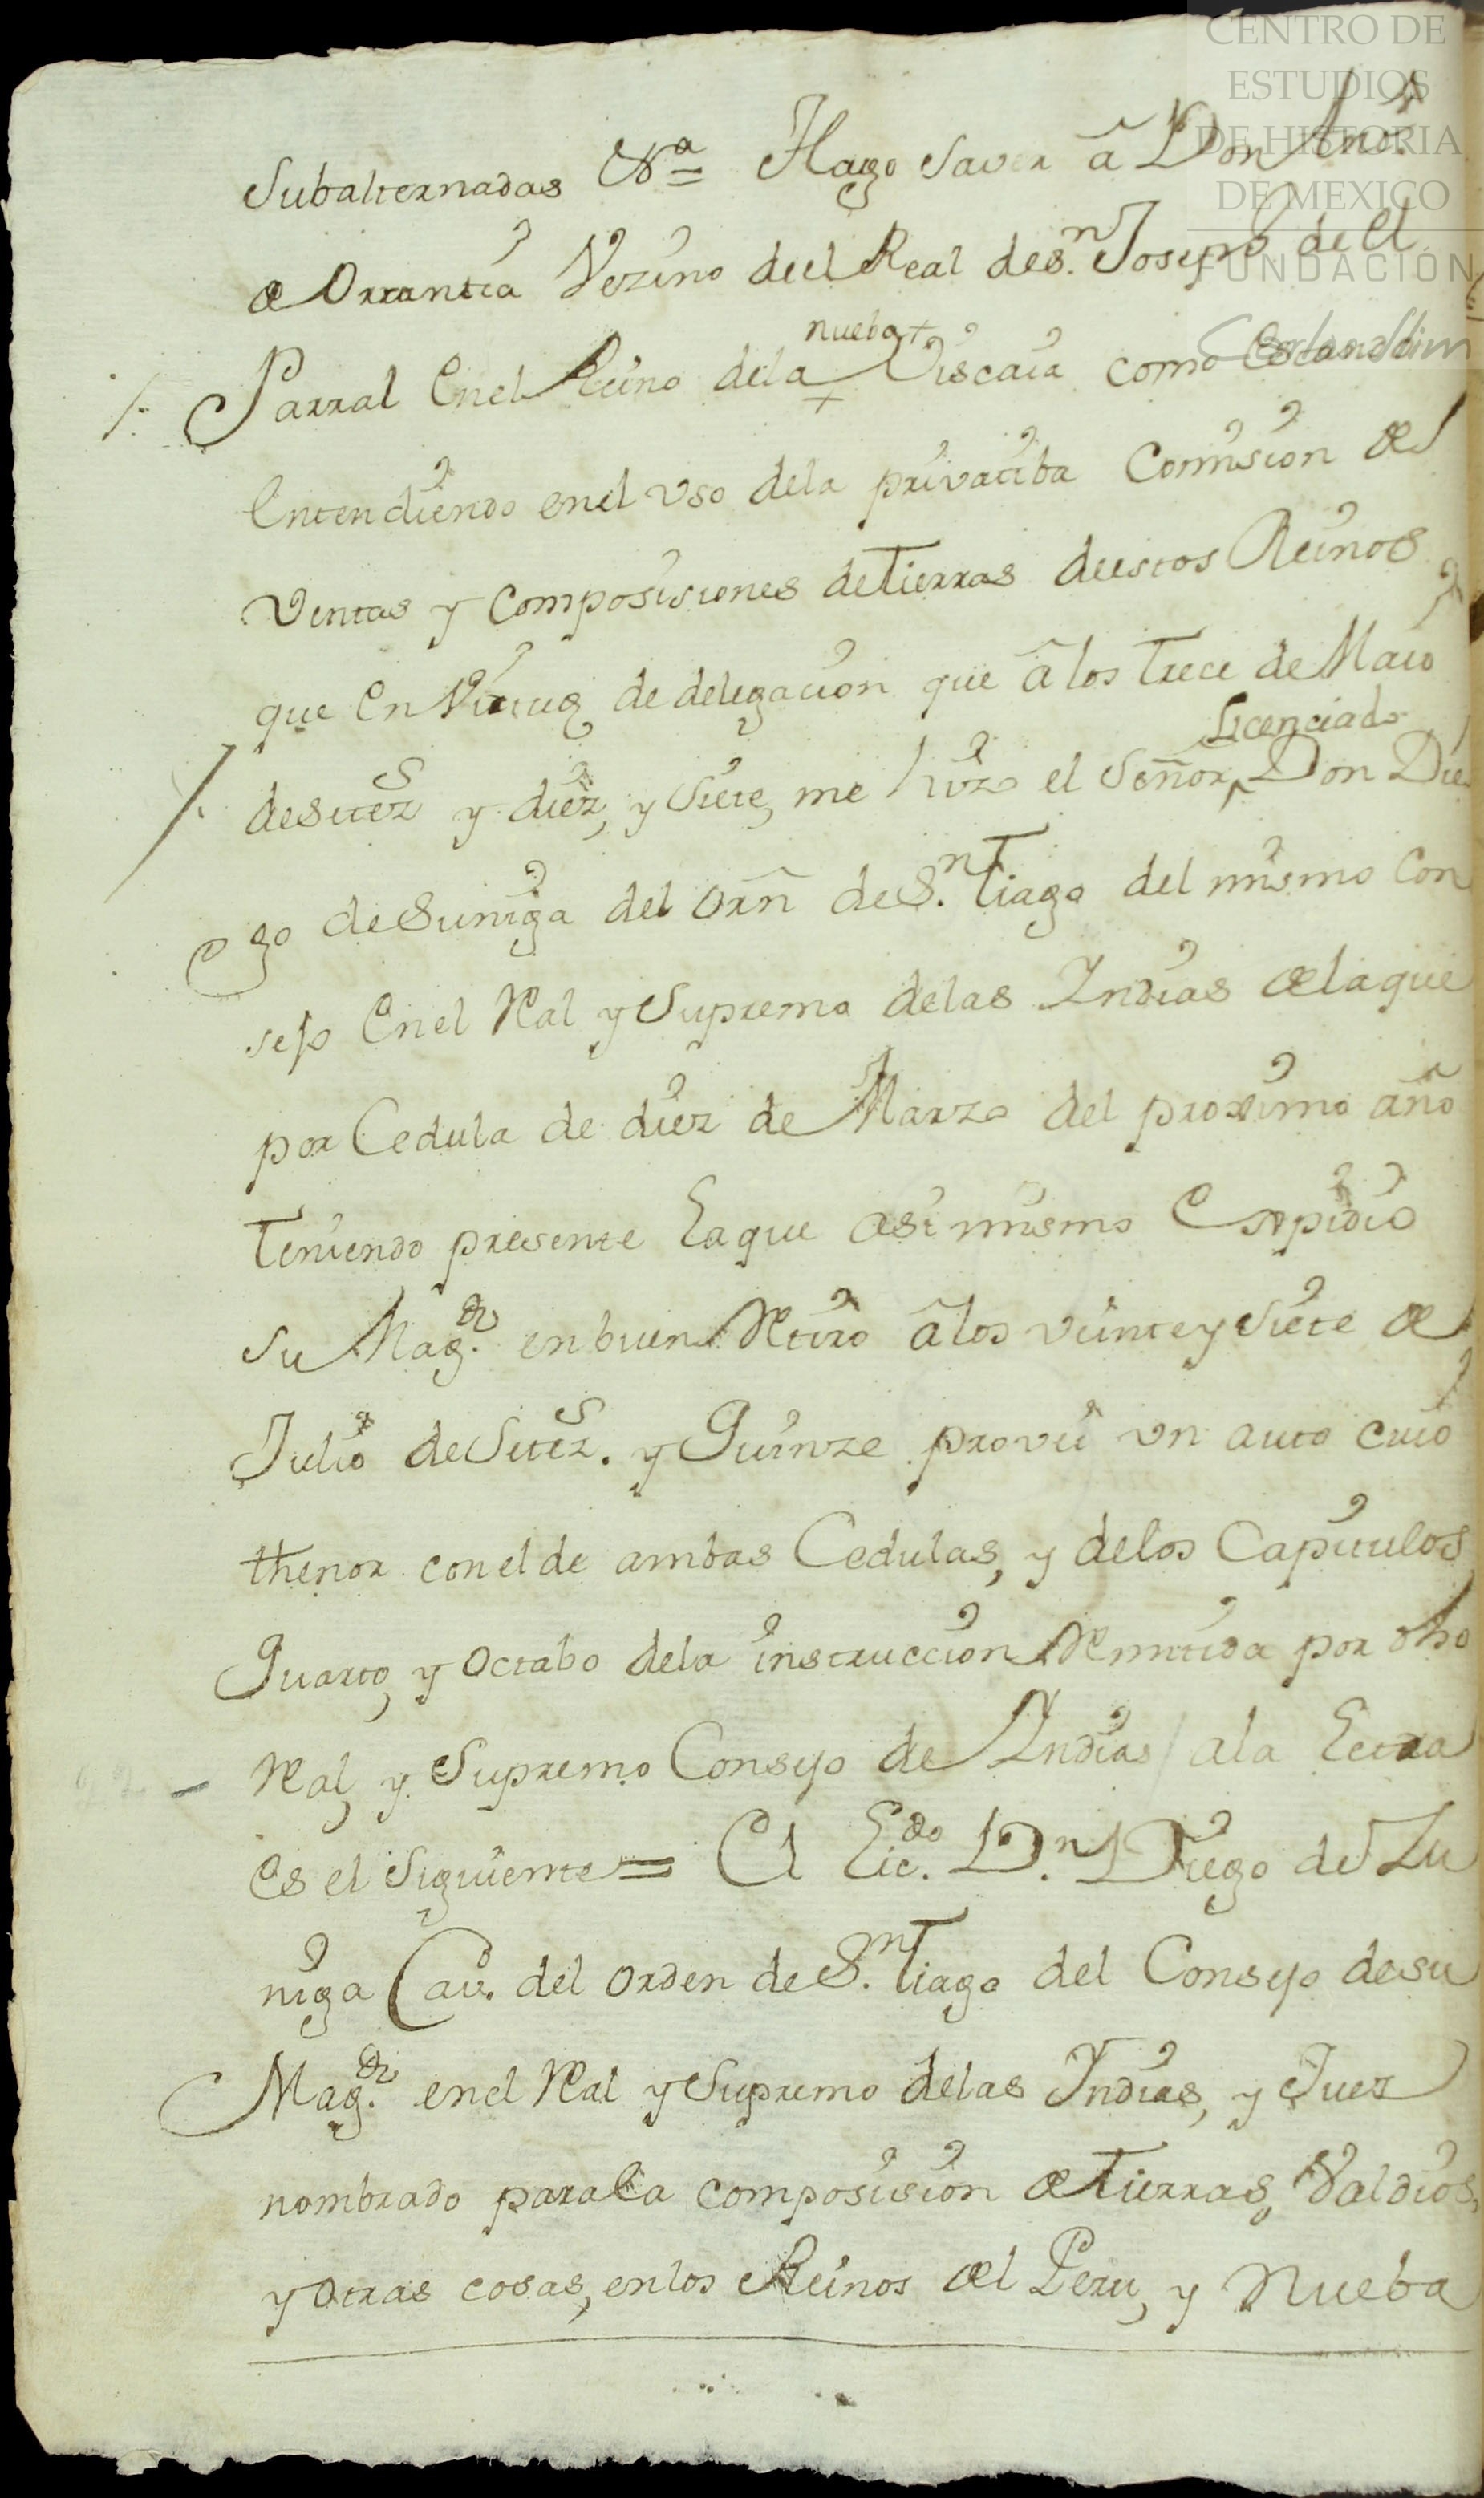 CENTRO DE
ESTUDIOS
DE HISTORIA
DE MEXICO
FUNDACIÓN
Subalternadas &ª = Hago Saver â Don
de Orrantia Vezino deel Real deS.n Joseph de el
Parral Enel Reino dela nueba + Viscaia como
Entendiendo enel vso dela privatiba Comision de
Ventas y Composisiones deTierras deestos Reinos
que En Virtud de delegacion que â los Trece de Maio
desetez.s y diez, y Siete, me hizo el Señor Licenciado Don Die
go deSuniga del orñ deS.nTiago del mismo Con
sejo Enel Real y Supremo delas Indias de laque
por Cedula de diez de Marzo del proximo año
Teniendo presente Laque asi mismo Expidio
Su Mag.d en buen Retiro â los veinte y Siete de
Julio deSetez.s y Quinze provei vn auto cuio
thenor con elde ambas Cedulas, y delos Capitulos
Quarto, y Octabo dela instruccion Remitida por dho
Real, y Supremo Consejo de Indias / ala Letra
Es el Siguiente = El Lic.do D.n Diego de Zu
niga Cav.o del orden deS.nTiago del Consejo desu
Mag.d enel Real y Supremo delas Indias, y Juez
nombrado parala composision de Tierras, Valdios,
y otras cosas, enlos Reinos del Peru, y Nueba